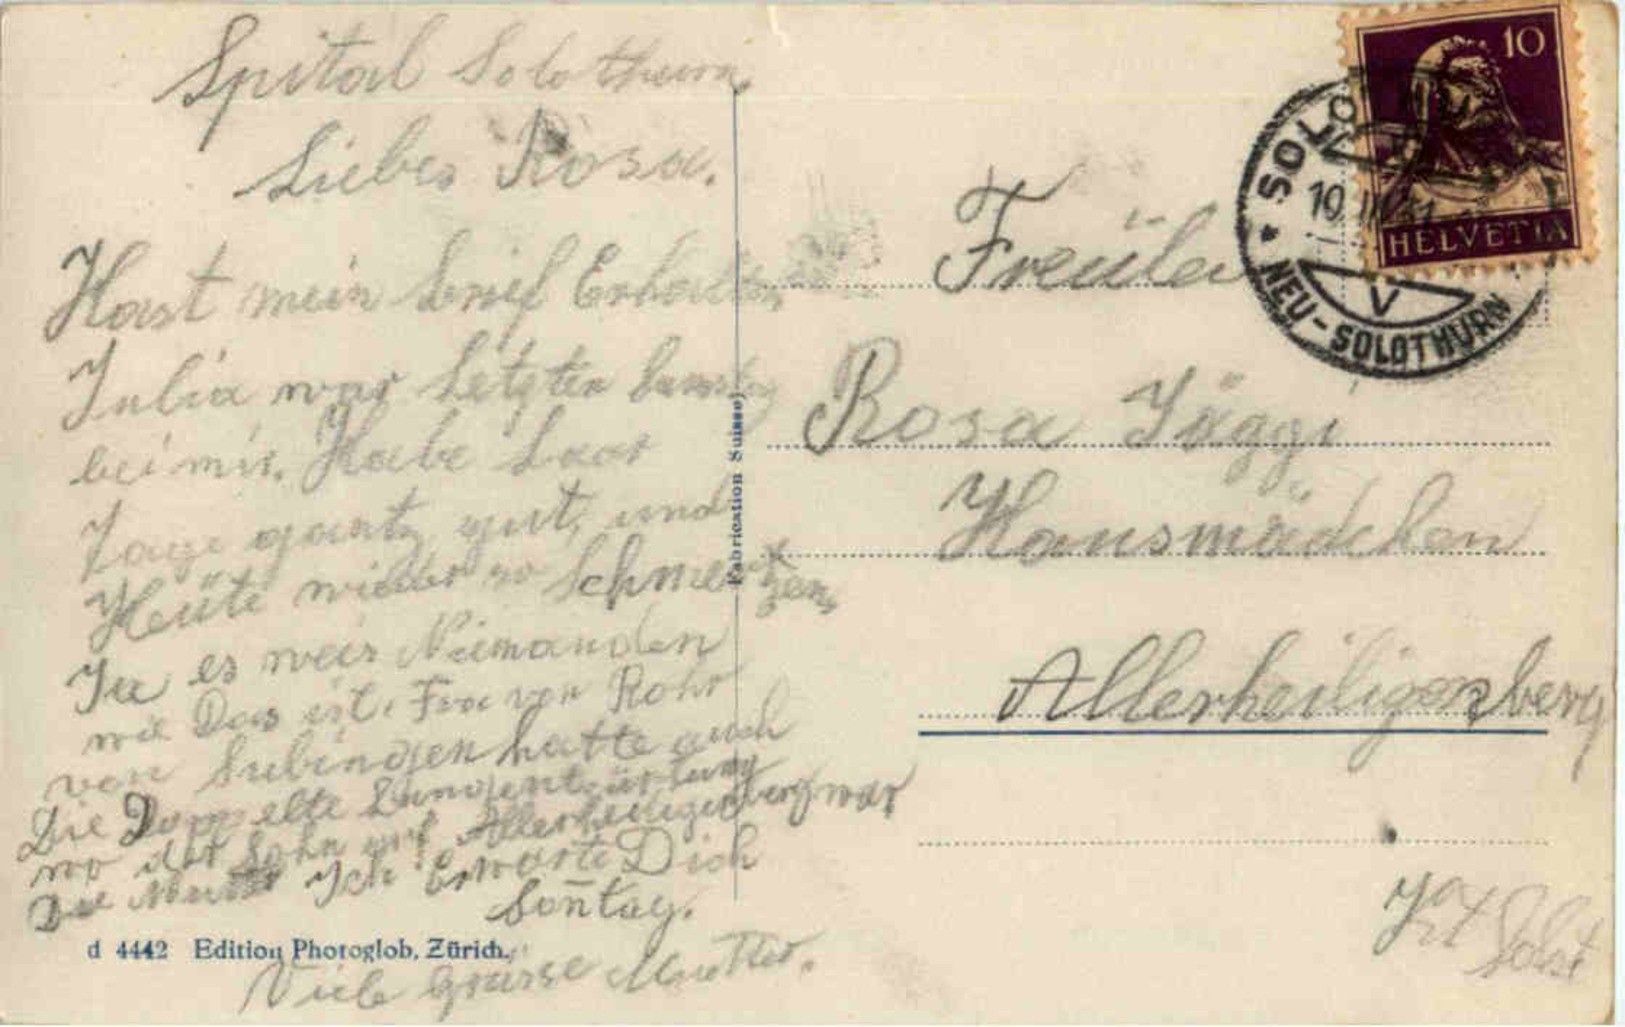 Spital Solothurn,
Liebes Rosa.
Hast mein brief Erhalten,
Julia war letzten Samstag
bei mir. Habe Paar
Tage gantz gut, und
Heüte wieder so Schmertzen,
Ja es weis Niemanden
wie Das ist. Frau von Rohr
von Subingen hatte auch
Die Doppelte Lungentzürtung
wo der Sohn auf Allerheiligenberg war
Die Mutter Ich Erwarte Dich
Sontag.
Viele grüsse Mutter.
d 4442 Edition Photoglob, Zürich.
Fabrication Suisse)
10
HELVETIA
SOLO
10. III. 31
V
NEU-SOLOTHURN
Freülei
Rosa Jäggi
Hausmädchen
Allerheiligenberg
Kt Solot